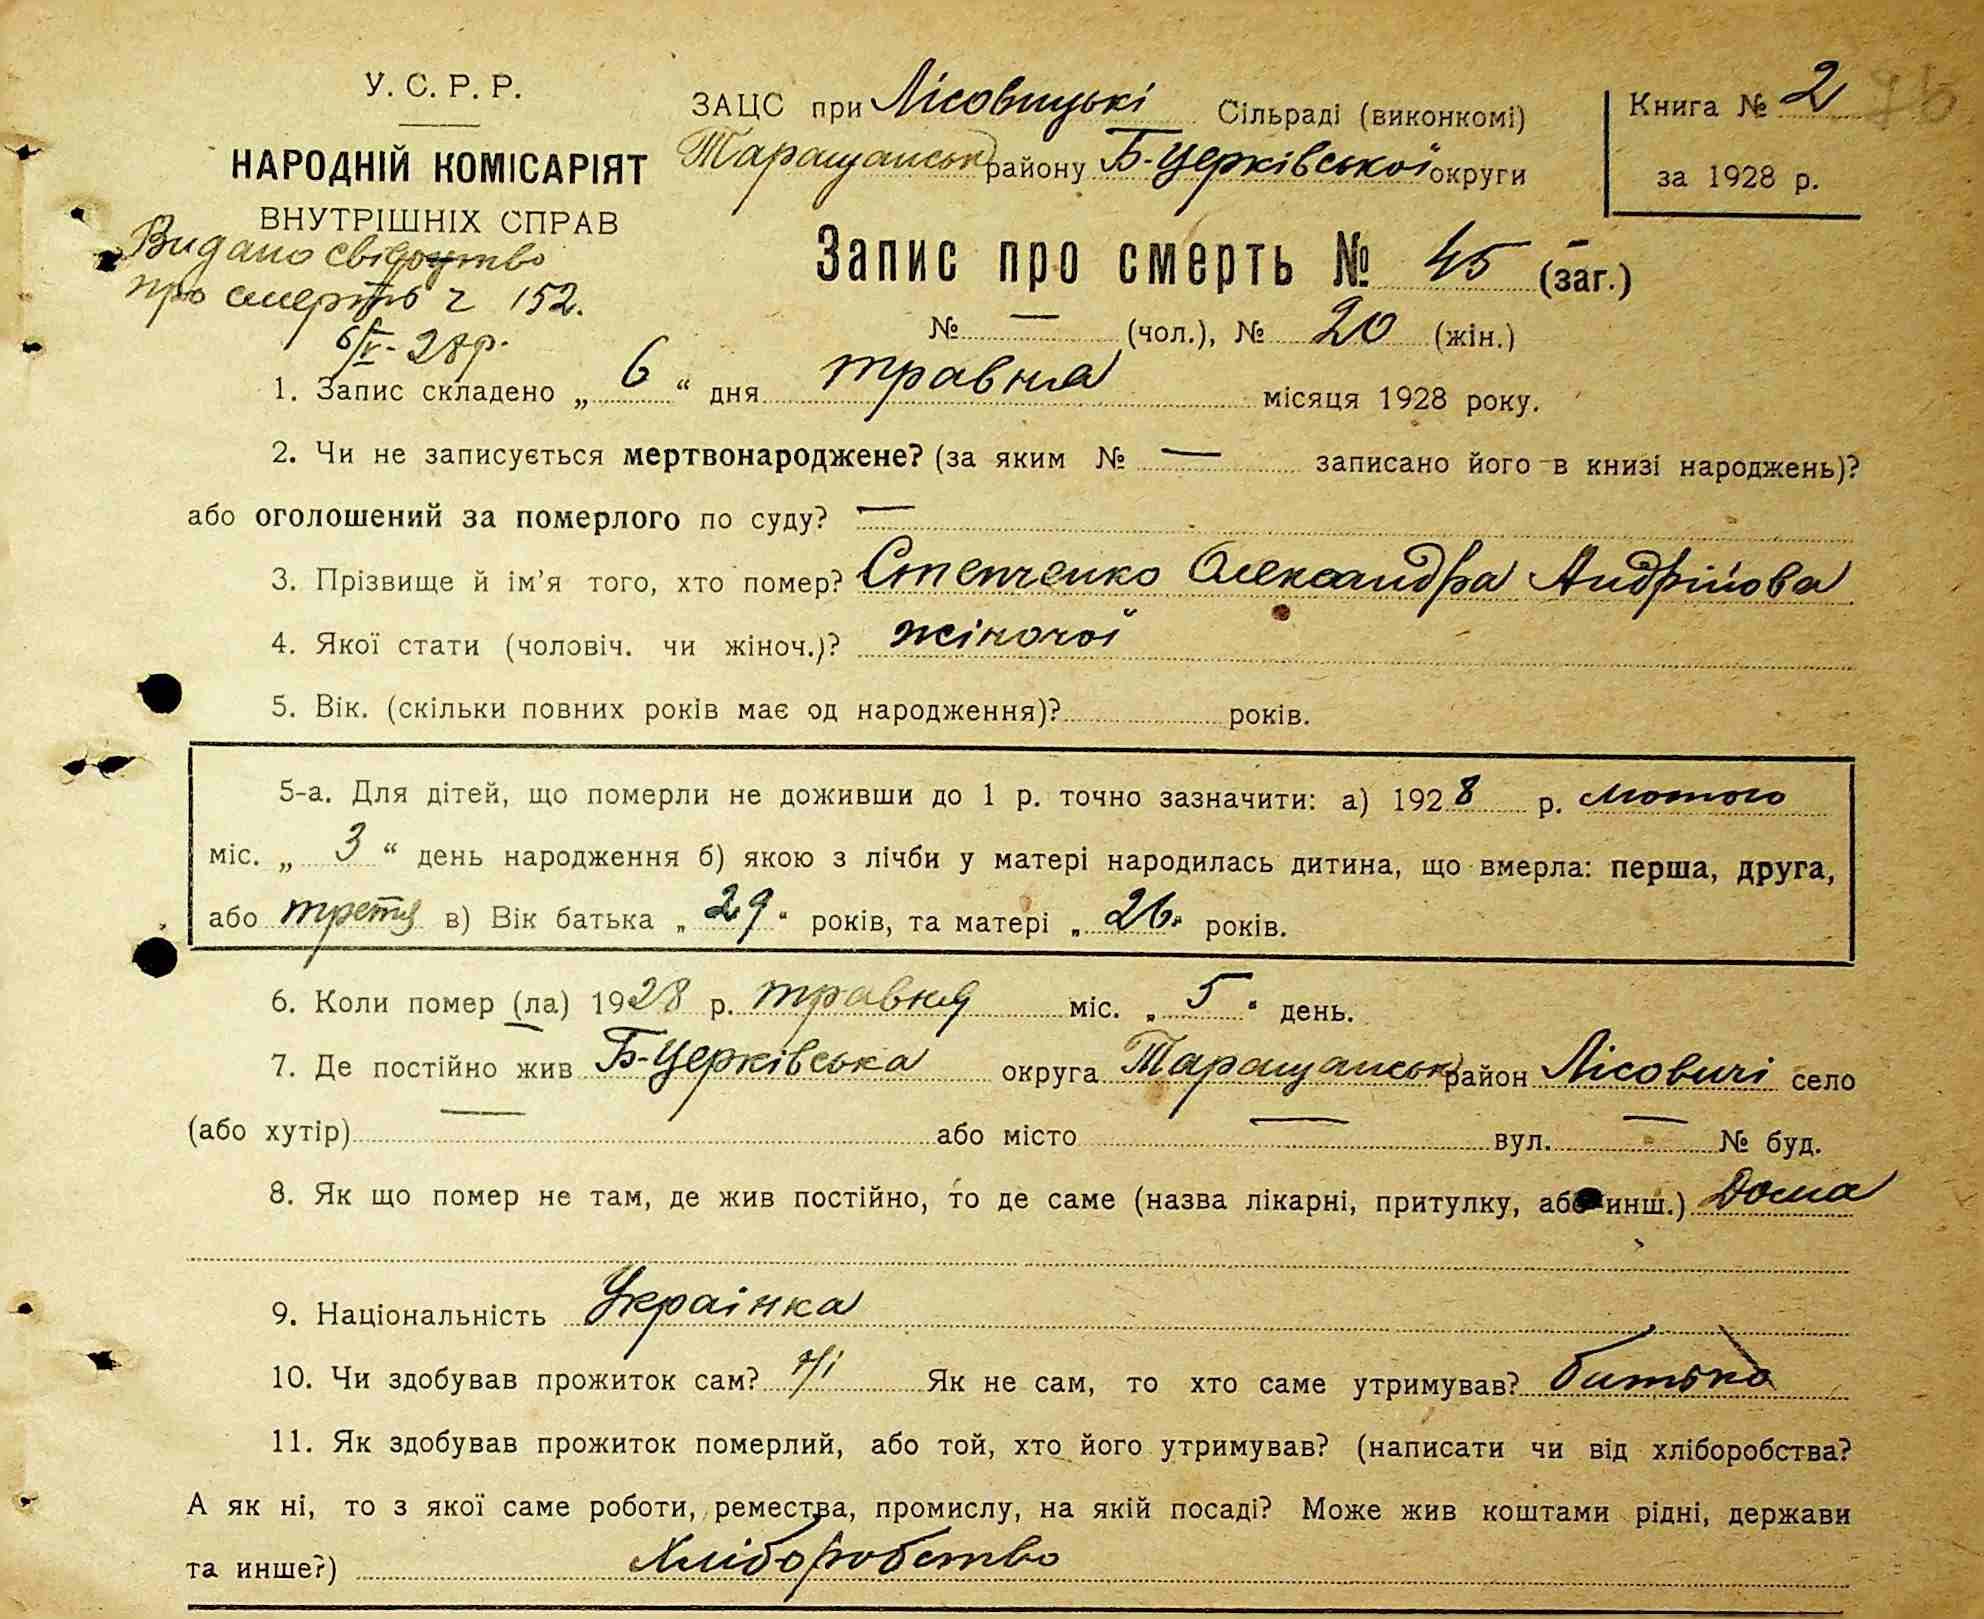 У. С. Р. Р.
НАРОДНІЙ КОМІСАРІЯТ
ВНУТРІШНІХ СПРАВ
Видано свідоцтво
про смерть ч 152.
6/V - 28 р.
ЗАЦС при Лісовицькі Сільраді (виконкомі)
Таращанськ району Б-Церківської округи
Книга № 2
за 1928 р.
Запис про смерть № 45 (заг.)
№ — (чол.), № 20 (жін.)
1. Запис складено „ 6 “ дня травня місяця 1928 року.
2. Чи не записується мертвонароджене? (за яким № — записано його в книзі народжень)?
або оголошений за померлого по суду? —
3. Прізвище й ім’я того, хто помер? Степченко Олександра Андрійова
4. Якої стати (чоловіч. чи жіноч.)? жіночої
5. Вік. (скільки повних років має од народження)? років.
5-а. Для дітей, що померли не доживши до 1 р. точно зазначити: а) 1928 р. лютого
міс. „ 3 “ день народження б) якою з лічби у матері народилась дитина, що вмерла: перша, друга,
або третя в) Вік батька „ 29 “ років, та матері „ 26 “ років.
6. Коли помер (ла) 1928 р. травня міс. „ 5 “ день.
7. Де постійно жив Б-Церківська округа Таращанськ район Лісовичі село
(або хутір) — або місто — вул. — № буд.
8. Як що помер не там, де жив постійно, то де саме (назва лікарні, притулку, або инш.) Дома
9. Національність Українка
10. Чи здобував прожиток сам? Ні Як не сам, то хто саме утримував? батько
11. Як здобував прожиток померлий, або той, хто його утримував? (написати чи від хліборобства?
А як ні, то з якої саме роботи, ремества, промислу, на якій посаді? Може жив коштами рідні, держави
та инше?) Хліборобство